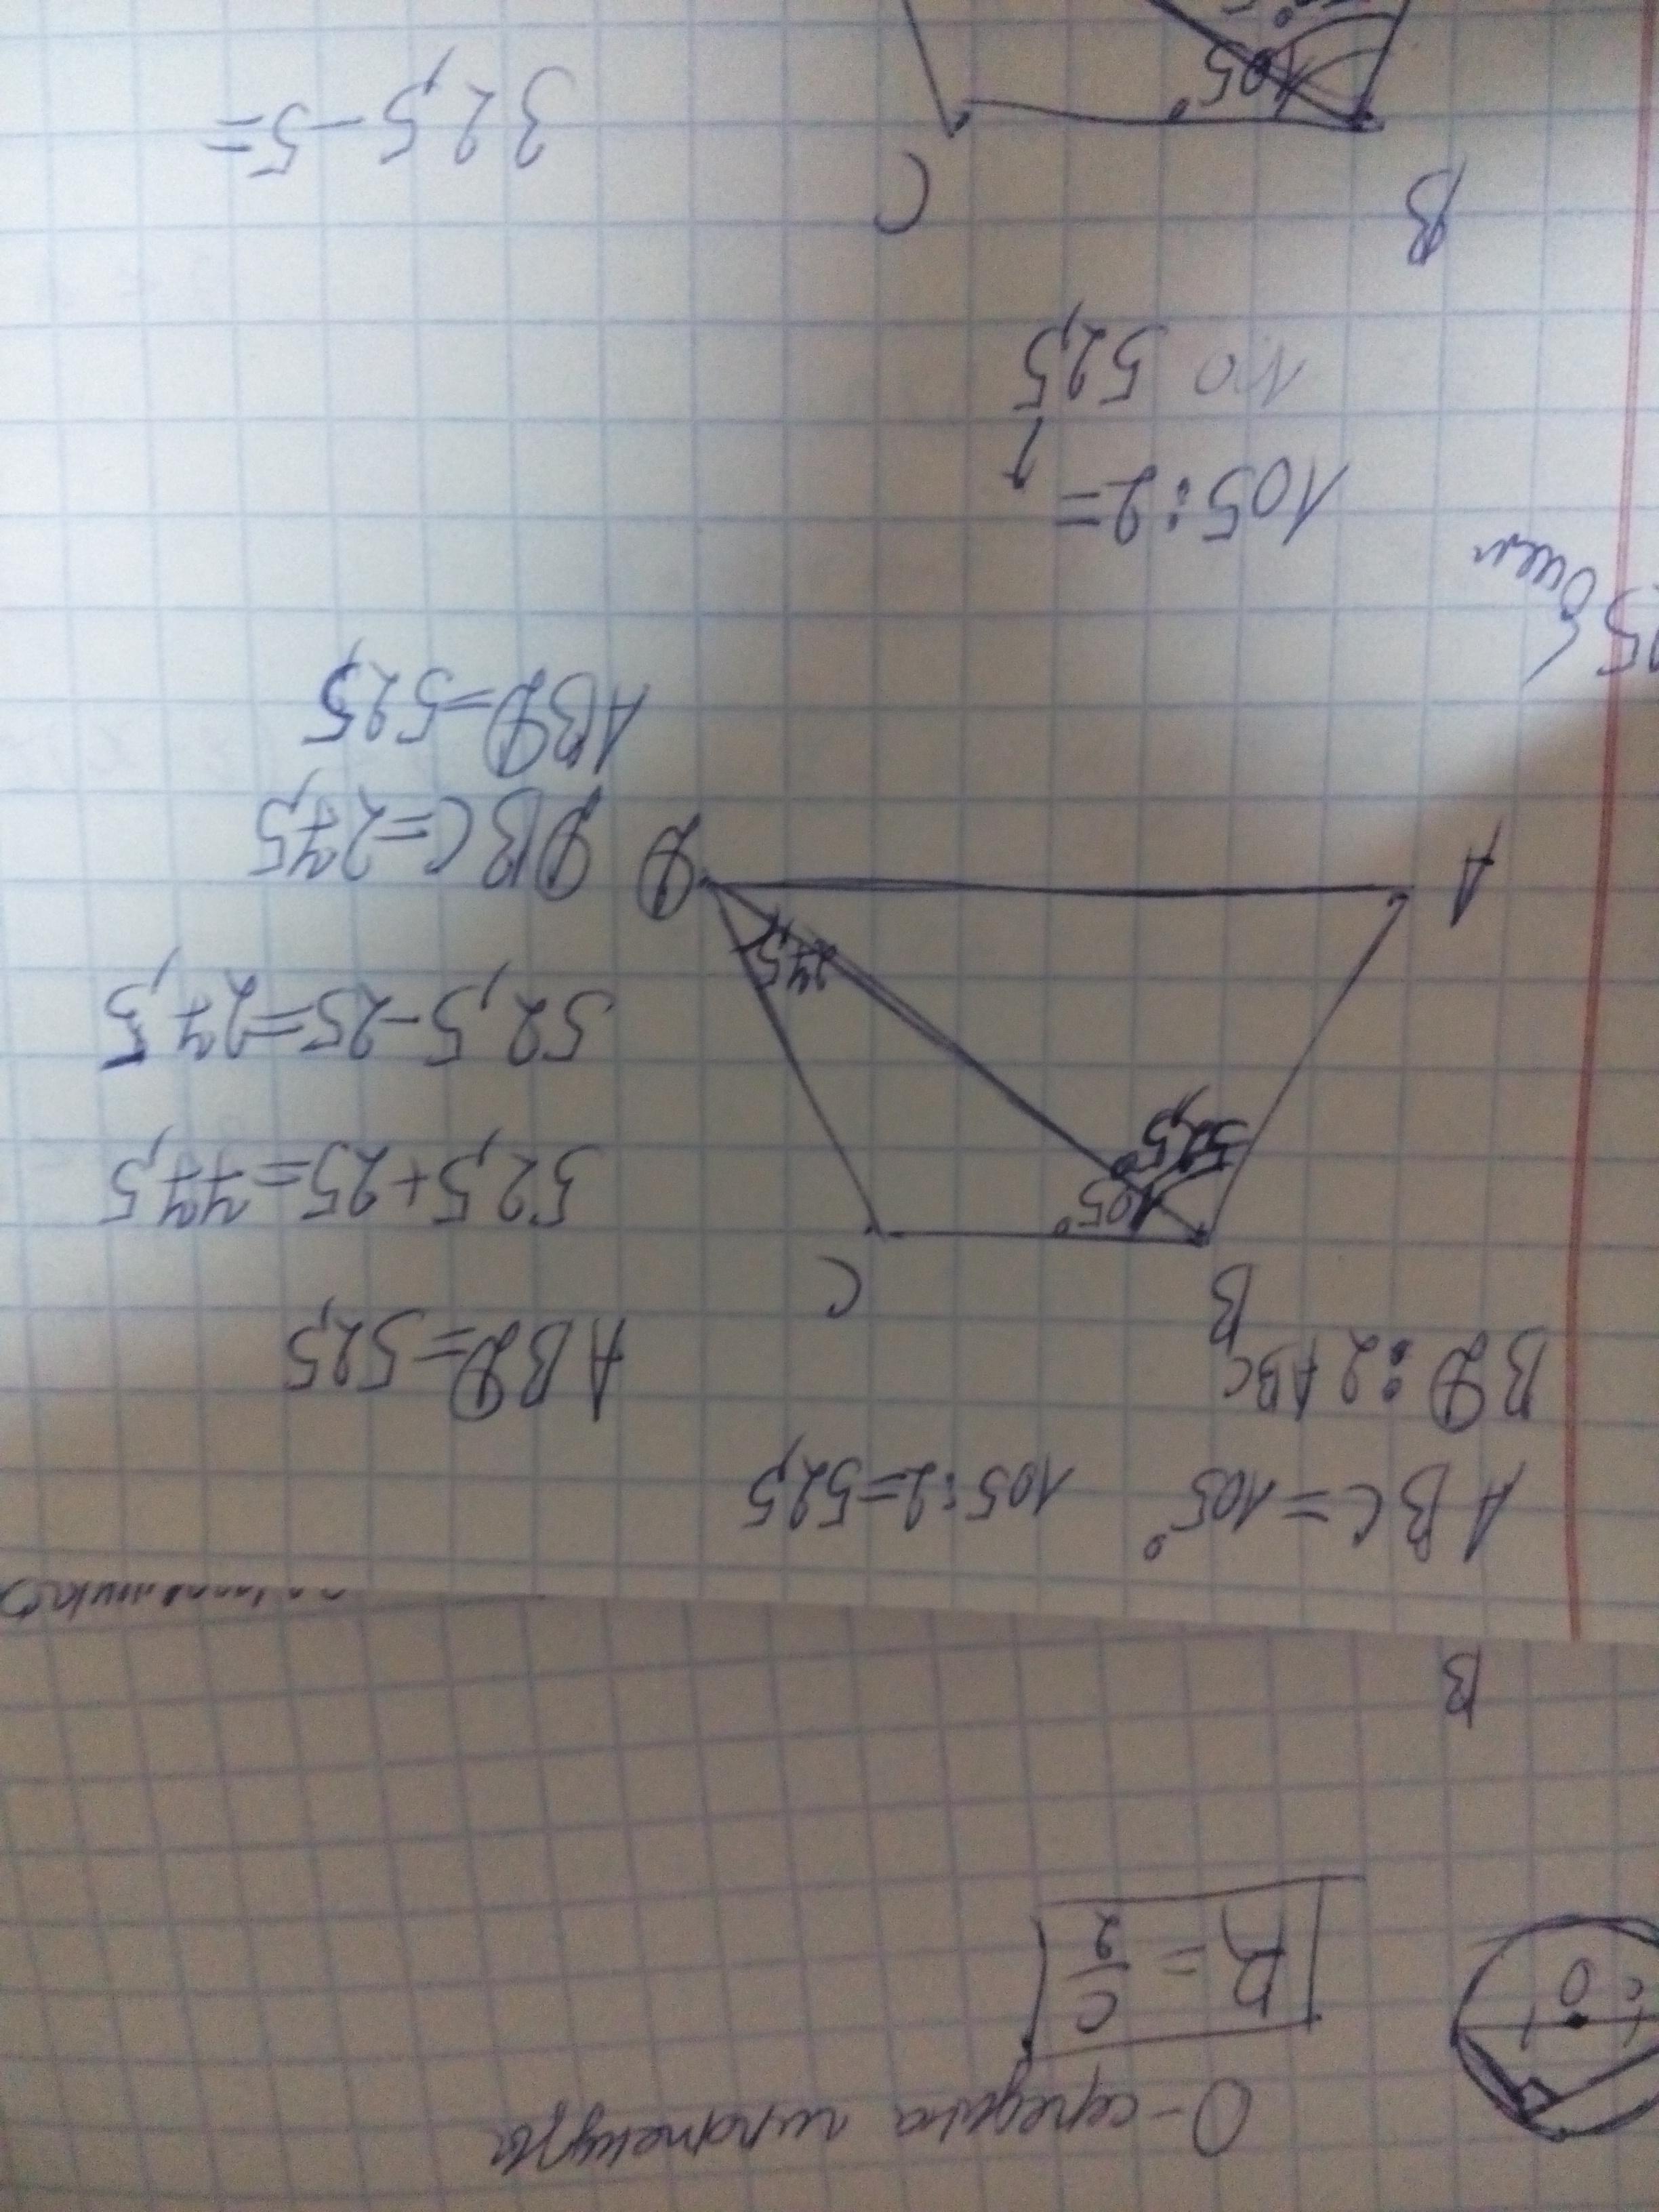 О-середина гипотенузы
O
c
R = C/2
B
ABC = 105° 105:2=52,5
BD:2 ABC
ABD=52,5
B
C
105°
52,5
52,5+25=77,5
52,5-25=27,5
27,5
A
D
DBC=27,5
ABD=52,5
105:2=
по 52,5
B
C
105°
32,5-5=